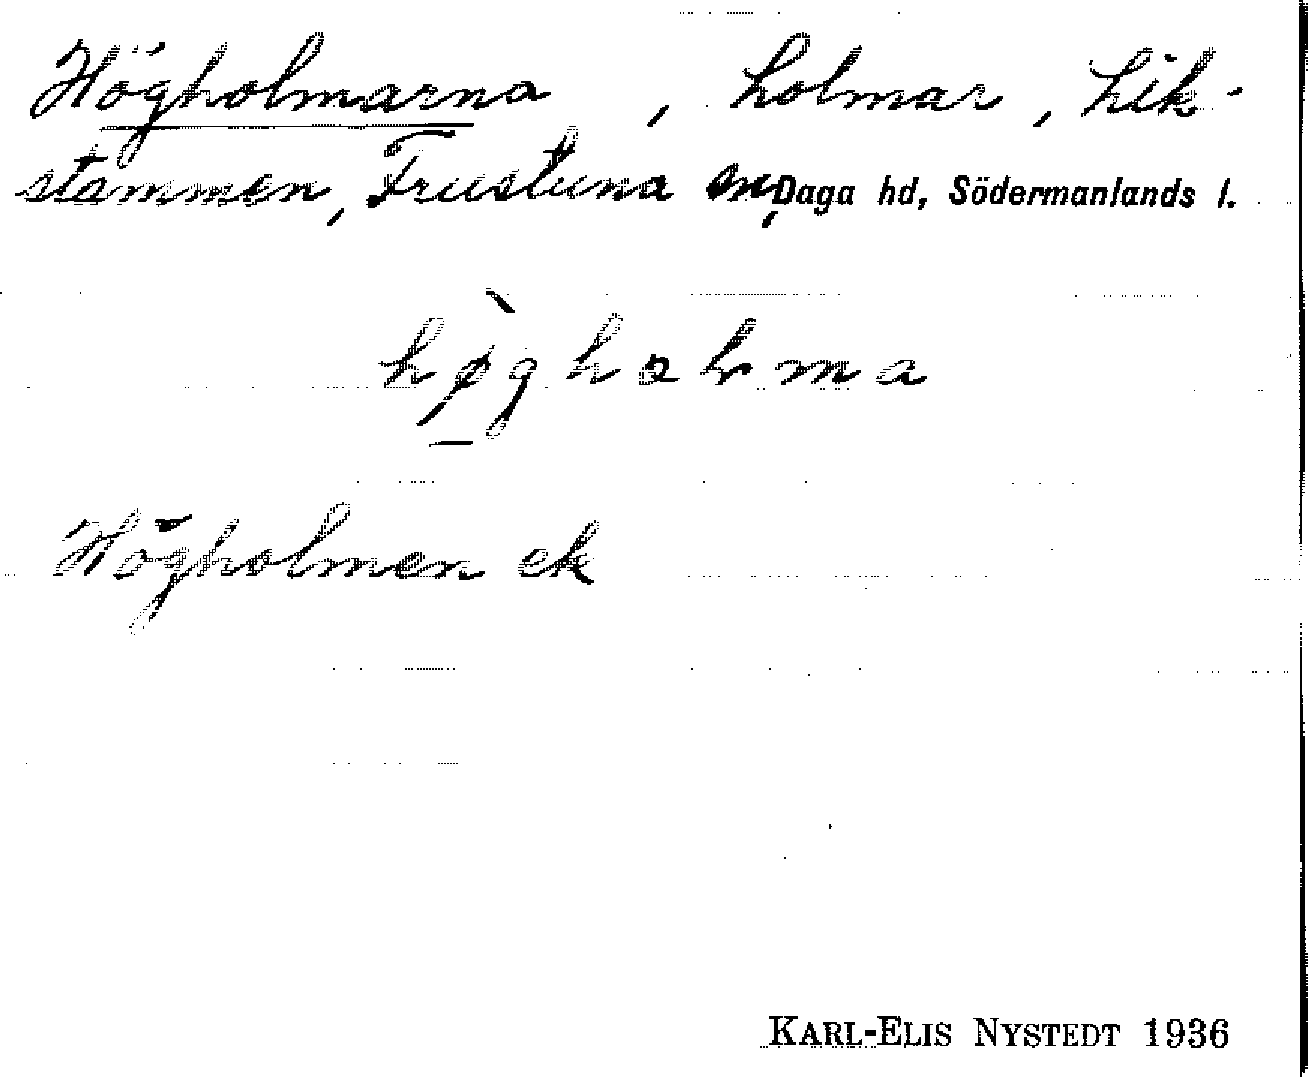 Högholmarna, holmar, Lik-
stammen, Frustuna sn, Daga hd, Södermanlands l.
hø̀gholma
Högholmen ek
KARL-ELIS NYSTEDT 1936